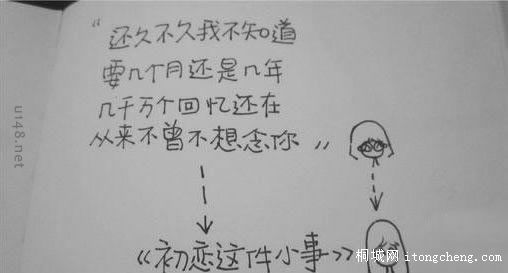 “还久不久我不知道
要几个月还是几年
几千万个回忆还在
从来不曾不想念你”
《初恋这件小事》
u148.net
桐城网 itongcheng.com